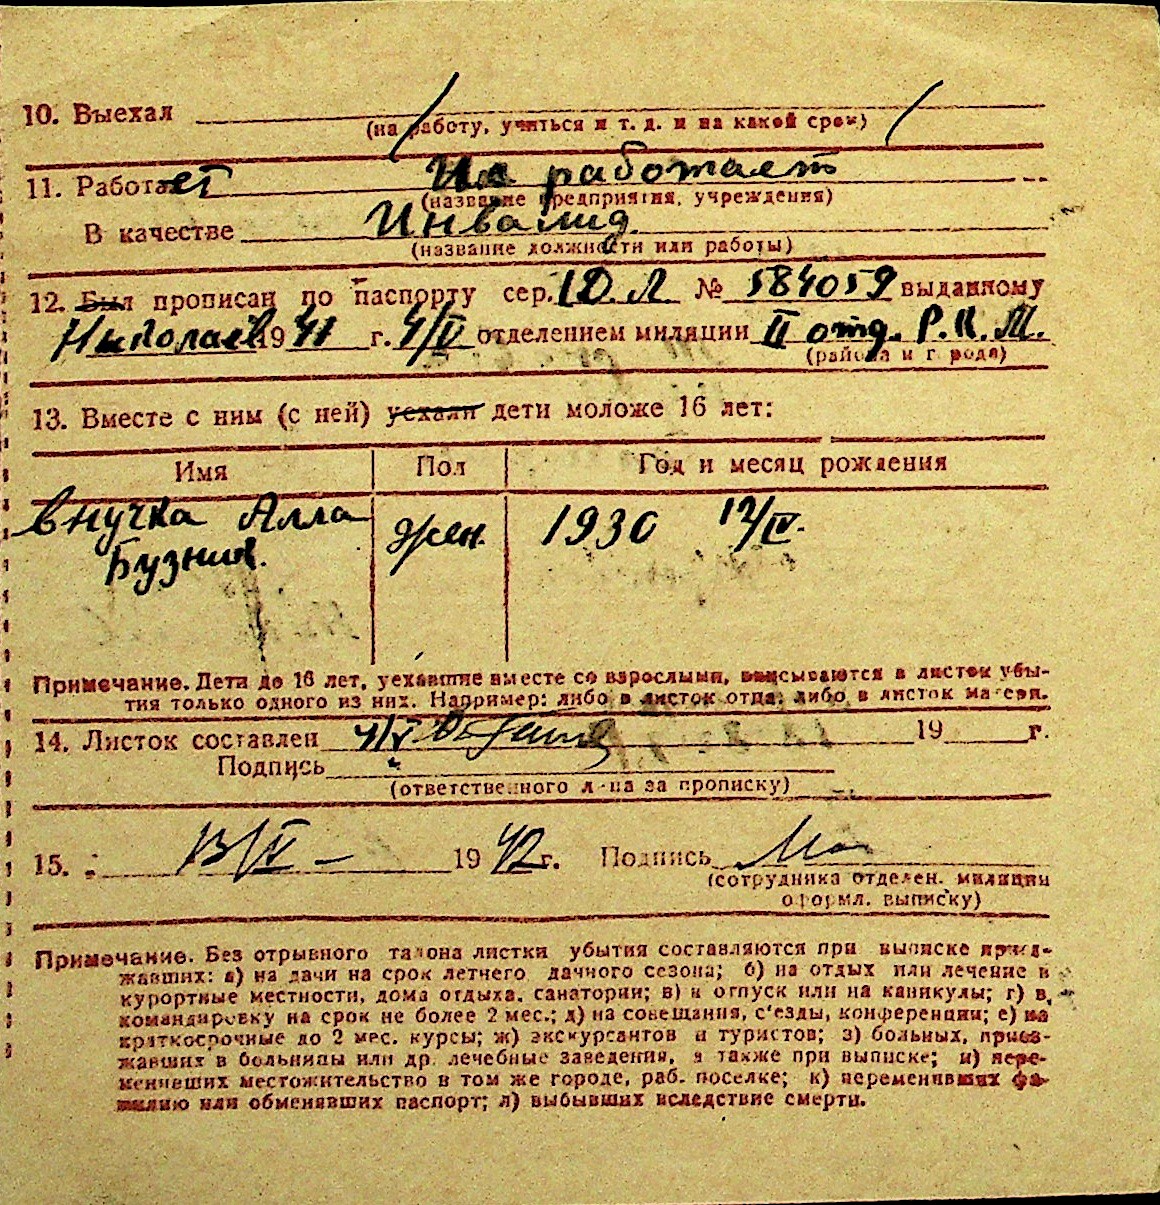 10. Выехал
(на работу, учиться и т. д. и на какой срок)
11. Работает Не работает
(название предприятия, учреждения)
В качестве Инвалид
(название должности или работы)
12. Был прописан по паспорту сер. IDЛ № 584059 выданному
Николаев 1941 г. 4/V отделением милиции II отд. Р.К.М.
(района и города)
13. Вместе с ним (с ней) уехали дети моложе 16 лет:
Имя Пол Год и месяц рождения
внучка Алла жен. 1930 12/IV.
Бузник.
Примечание. Дети до 16 лет, уехавшие вместе со взрослыми, вписываются в листок убы-
тия только одного из них. Например: либо в листок отца, либо в листок матери.
14. Листок составлен 4/V 19 г.
Подпись
(ответственного лица за прописку)
15. 13/V 1942 г. Подпись
(сотрудника отделен. милиции
оформл. выписку)
Примечание. Без отрывного талона листки убытия составляются при выписке приез-
жавших: а) на дачи на срок летнего дачного сезона; б) на отдых или лечение в
курортные местности, дома отдыха, санатории; в) в отпуск или на каникулы; г) в
командировку на срок не более 2 мес.; д) на совещания, с'езды, конференции; е) на
краткосрочные до 2 мес. курсы; ж) экскурсантов и туристов; з) больных, приез-
жавших в больницы или др. лечебные заведения, а также при выписке; и) пере-
менивших местожительство в том же городе, раб. поселке; к) переменивших фа-
милию или обменявших паспорт; л) выбывших вследствие смерти.